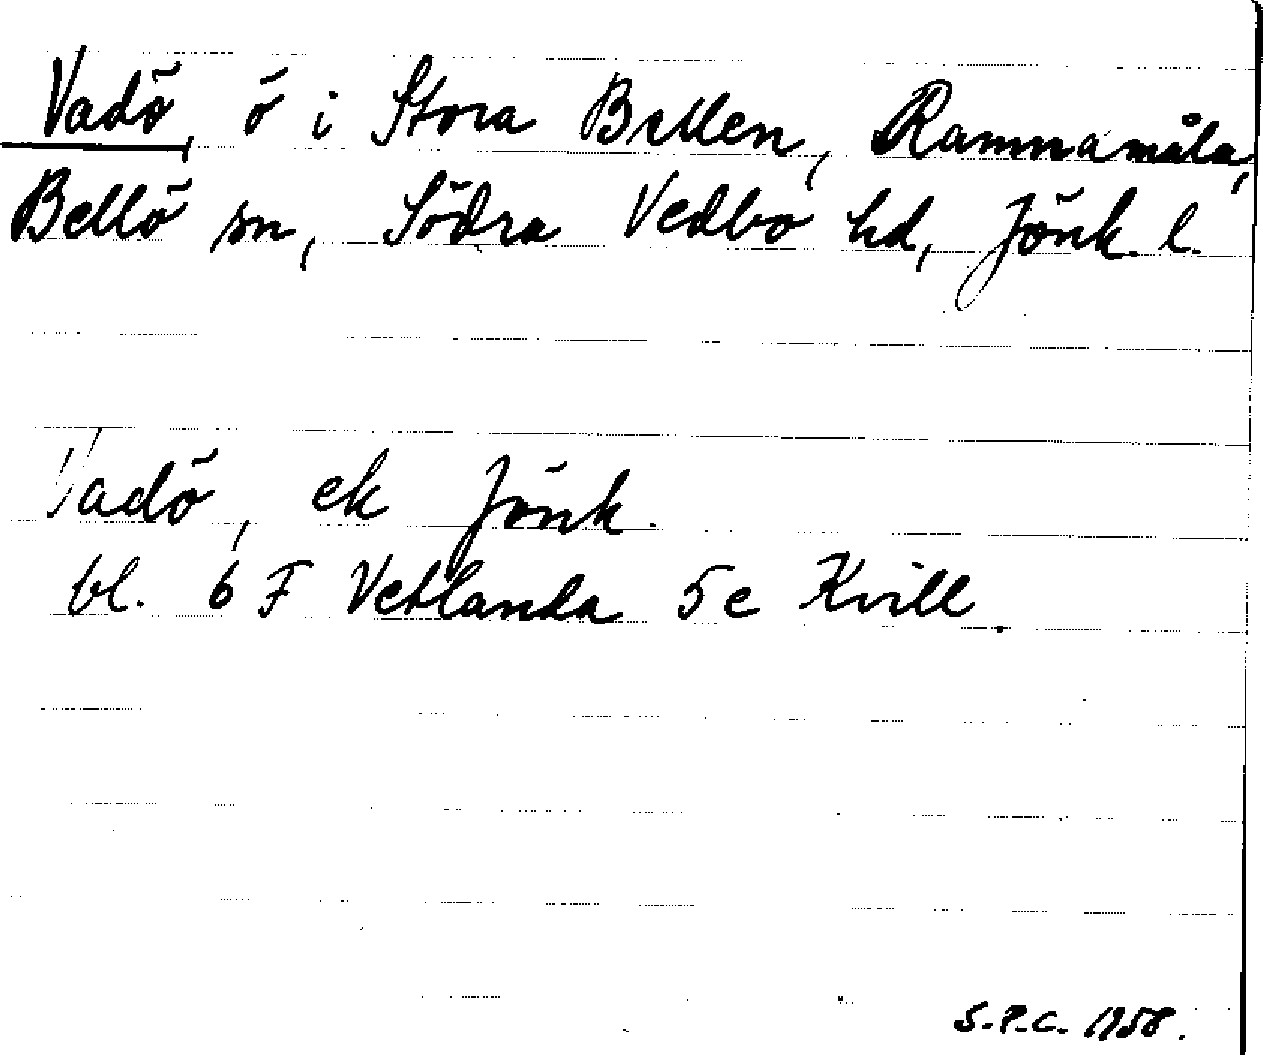 Vadö, ö i Stora Bellen, Rammamåla,
Bellö sn, Södra Vedbo hd, Jönk. l.
Vadö, ek Jönk.
bl. 6 F Vetlanda 5e Kvill.
S.P.C. 1958.